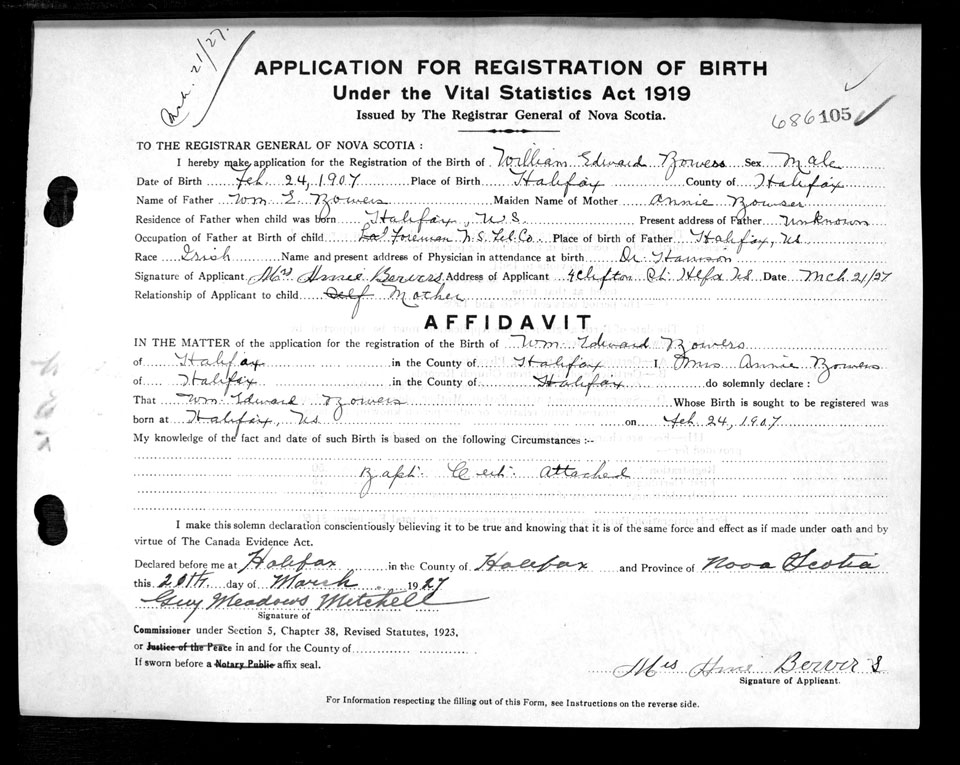 Mch. 21/27.
APPLICATION FOR REGISTRATION OF BIRTH
Under the Vital Statistics Act 1919
Issued by The Registrar General of Nova Scotia.
686105
TO THE REGISTRAR GENERAL OF NOVA SCOTIA :
I hereby make application for the Registration of the Birth of William Edward Bowers Sex Male
Date of Birth Feb. 24, 1907 Place of Birth Halifax County of Halifax
Name of Father Wm E. Bowers Maiden Name of Mother Annie Bowser
Residence of Father when child was born Halifax, N.S. Present address of Father Unknown
Occupation of Father at Birth of child Foreman N.S. Tel. Co. Place of birth of Father Halifax, Ns
Race Irish Name and present address of Physician in attendance at birth Dr
Signature of Applicant Mrs Annie Bowers Address of Applicant 4 Clifton St. Hlfx NS Date Mch 21/27
Relationship of Applicant to child Self Mother
AFFIDAVIT
IN THE MATTER of the application for the registration of the Birth of Wm. Edward Bowers
of Halifax in the County of Halifax I, Mrs Annie Bowers
of Halifax in the County of Halifax do solemnly declare :
That Wm. Edward Bowers Whose Birth is sought to be registered was
born at Halifax, Ns on Feb 24, 1907
My knowledge of the fact and date of such Birth is based on the following Circumstances :--
Bapt. Cert. Attached
I make this solemn declaration conscientiously believing it to be true and knowing that it is of the same force and effect as if made under oath and by
virtue of The Canada Evidence Act.
Declared before me at Halifax in the County of Halifax and Province of Nova Scotia
this 20th. day of March 1927
Guy Meadows Mitchell
Signature of
Commissioner under Section 5, Chapter 38, Revised Statutes, 1923,
or Justice of the Peace in and for the County of
If sworn before a Notary Public affix seal.
Mrs Annie Bowers
Signature of Applicant.
For Information respecting the filling out of this Form, see Instructions on the reverse side.